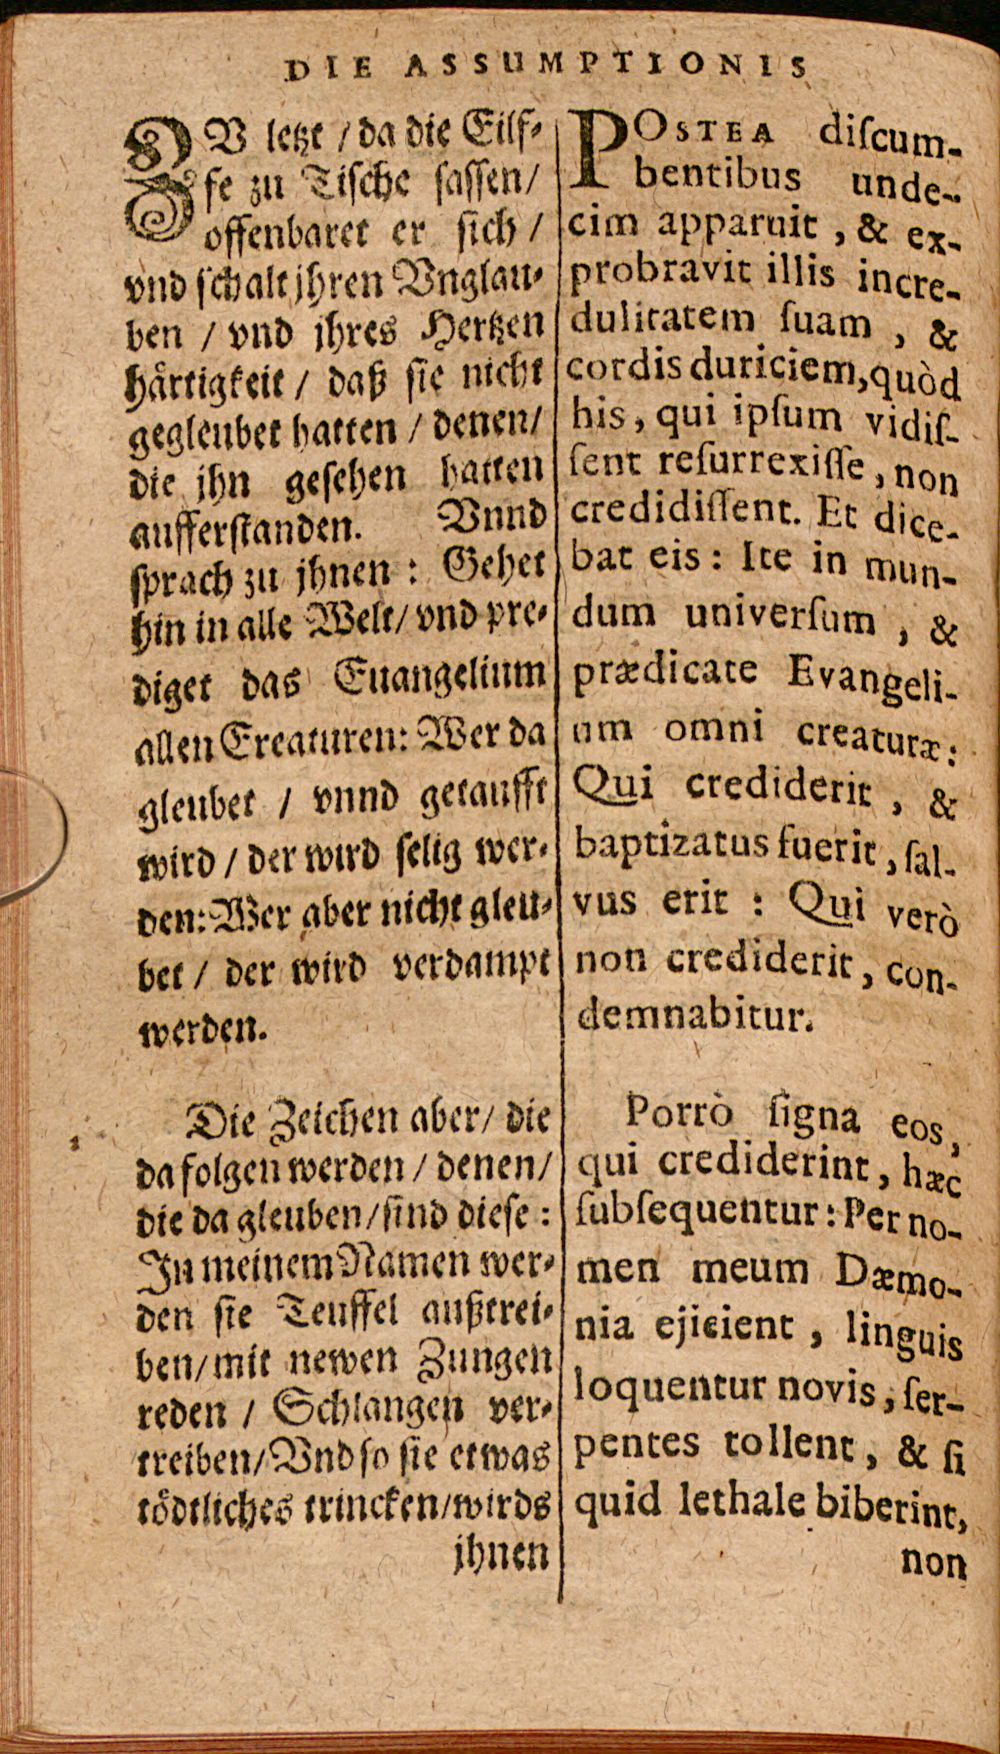 DIE ASSUMPTIONIS
ZV letzt / da die Eilf-
fe zu Tische sassen/
offenbaret er sich /
vnd schalt jhren Vnglau-
ben / vnd jhres Hertzen
härtigkeit / daß sie nicht
gegleubet hatten / denen/
die jhn gesehen hatten
aufferstanden. Vnnd
sprach zu jhnen : Gehet
hin in alle Welt/ vnd pre-
diget das Euangelium
allen Creaturen: Wer da
gleubet / vnnd getaufft
wird / der wird selig wer-
den: Wer aber nicht gleu-
bet / der wird verdampt
werden.
Die Zeichen aber/ die
da folgen werden / denen/
die da gleuben/ sind diese :
In meinem Namen wer-
den sie Teuffel außtrei-
ben/ mit newen Zungen
reden / Schlangen ver-
treiben/ Vnd so sie etwas
tödtliches trincken/ wirds
jhnen
POSTEA diſcum-
bentibus unde-
cim apparuit , & ex-
probravit illis incre-
dulitatem ſuam , &
cordis duriciem, quòd
his, qui ipſum vidiſ-
ſent reſurrexiſſe, non
credidiſſent. Et dice-
bat eis : Ite in mun-
dum univerſum , &
prædicate Evangeli-
um omni creaturæ:
Qui crediderit , &
baptizatus fuerit, ſal-
vus erit : Qui verò
non crediderit, con-
demnabitur.
Porrò ſigna eos,
qui crediderint, hæc
ſubſequentur : Per no-
men meum Dæmo-
nia ejicient , linguis
loquentur novis, ſer-
pentes tollent, & ſi
quid lethale biberint,
non